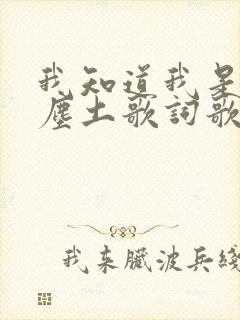 我知道我是
塵土歌詞歌
我来臓波兵綫